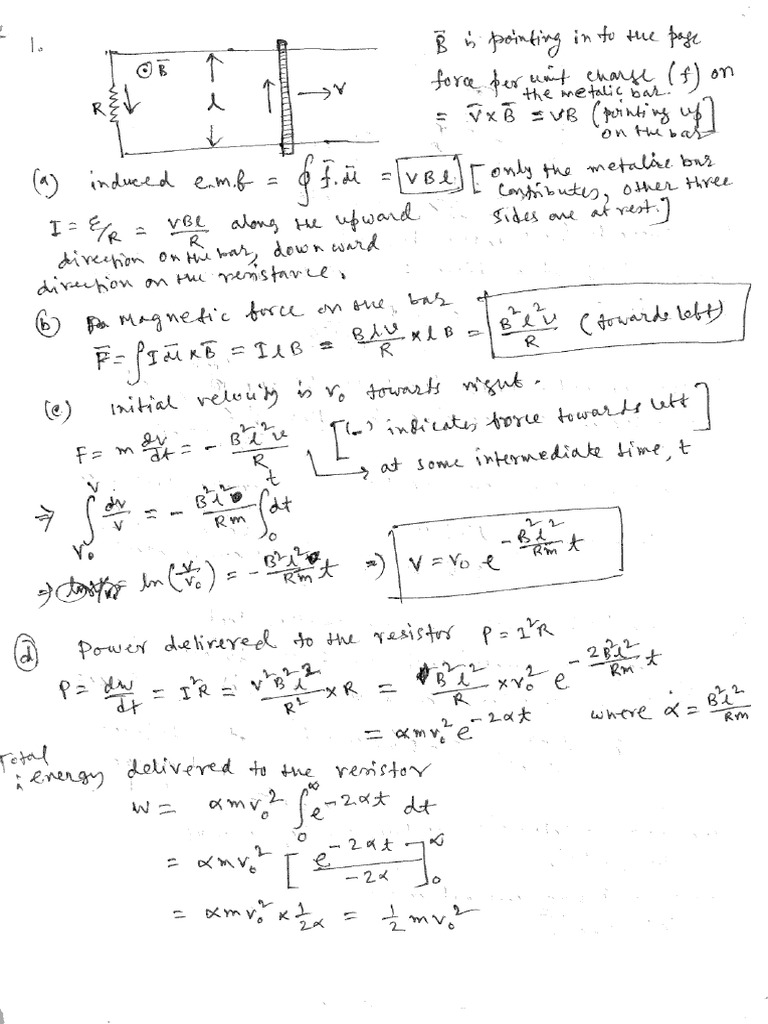 1.
⊙ B̄
R
l
→v
B̄ is pointing in to the page
force per unit charge (f) on
the metalic bar.
= v̄×B̄ = vB (pointing up]
on the bar
(a) induced e.m.f = ∮ f̄.dl̄ = vBl [only the metallic bar
contributes, other three
sides are at rest.]
I = ε/R = vBl/R along the upward
direction on the bar, down ward
direction on the resistance.
(b) magnetic force on the bar
F̄ = ∫ I dl̄ × B̄ = I l B = Blv/R × l B = B²l²v/R (towards left)
(c) initial velocity is v₀ towards right.
F = m dv/dt = - B²l²v/R [(-) indicates force towards left]
→ at some intermediate time, t
⇒ ∫_{v₀}^{v} dv/v = - B²l²/Rm ∫_{0}^{t} dt
⇒ ln(v/v₀) = - B²l²/Rm t ⇒ v = v₀ e^{-B²l²/Rm t}
(d) Power delivered to the resistor P = I²R
P = dw/dt = I²R = v²B²l²/R² × R = B²l²/R × v₀² e^{-2B²l²/Rm t}
= αmv₀² e^{-2αt} where α = B²l²/Rm
Total
∴ energy delivered to the resistor
W = αmv₀² ∫_{0}^{∞} e^{-2αt} dt
= αmv₀² [e^{-2αt}/-2α]_{0}^{∞}
= αmv₀² × 1/2α = 1/2 mv₀²